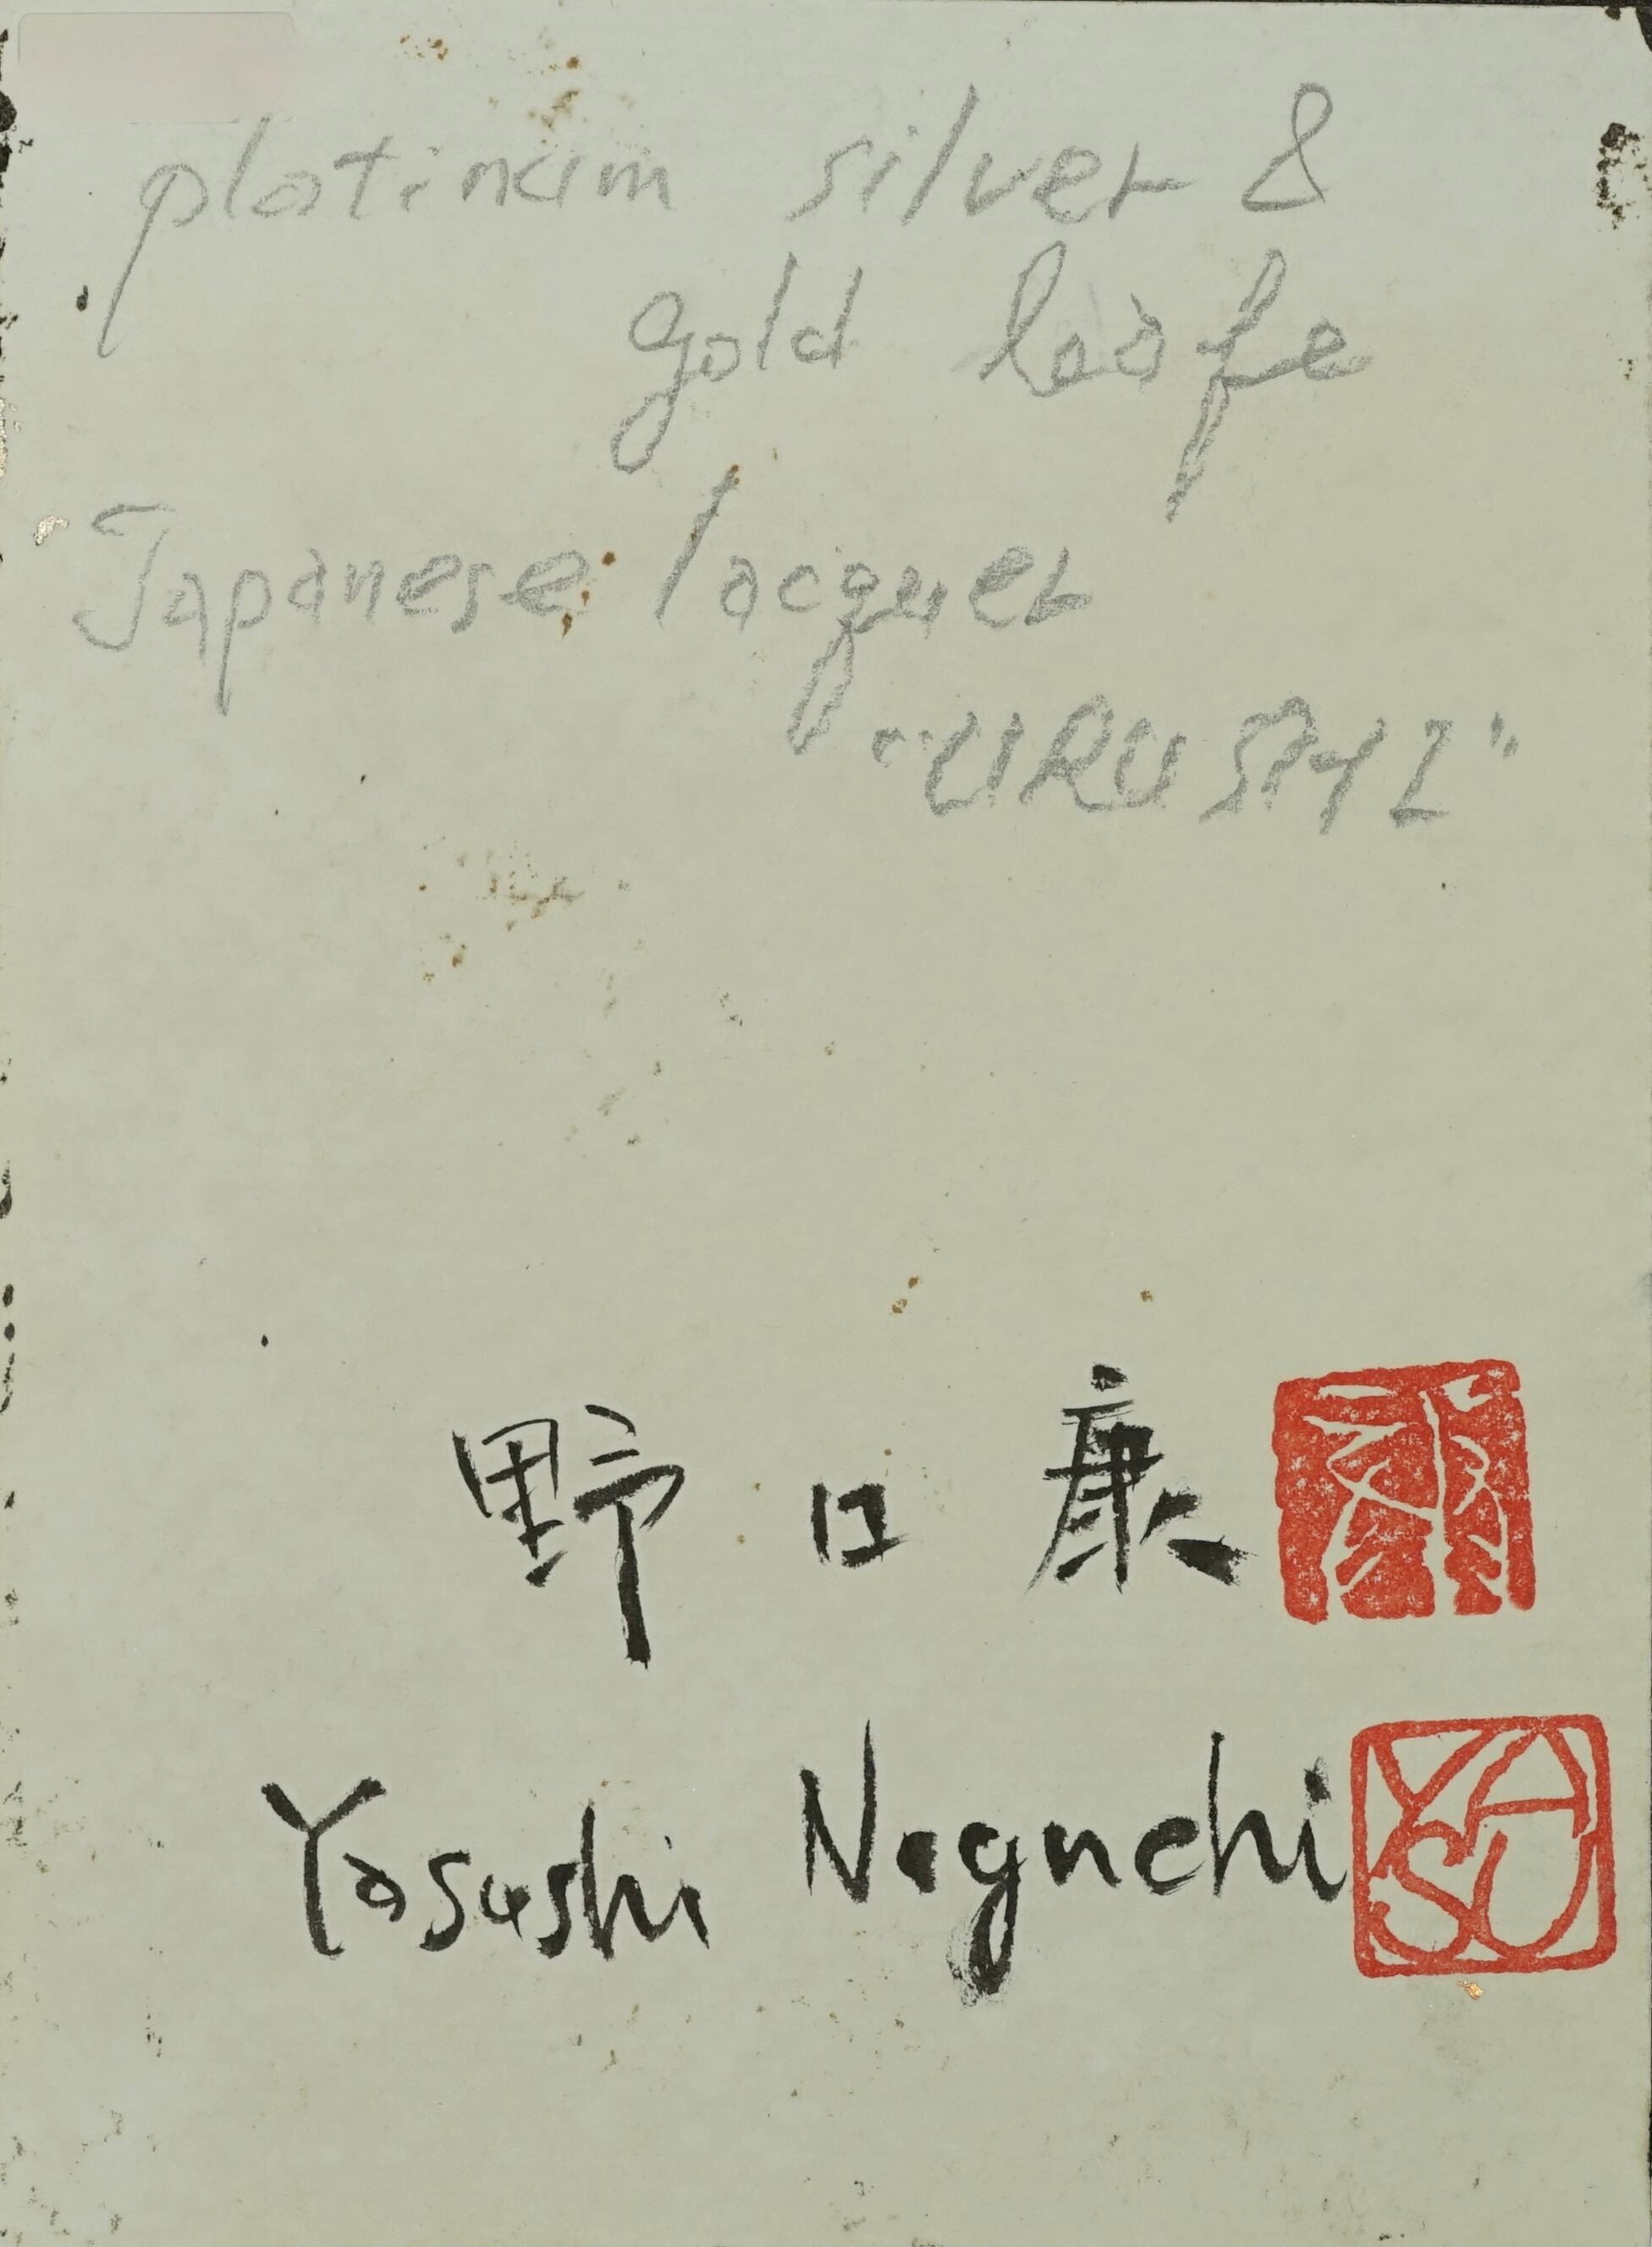 platinum silver &
gold leafe
Japanese lacquer
"URUSHI"
野口康
Yasushi Noguchi
YASU